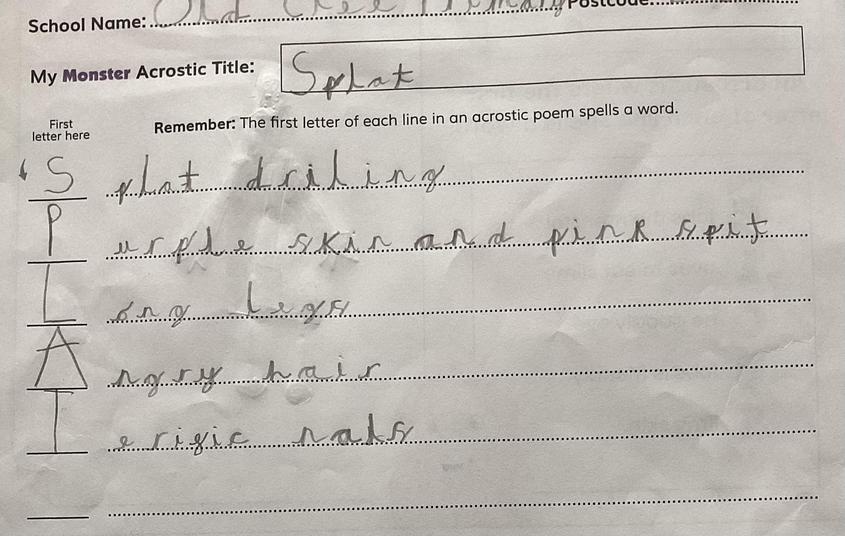 School Name: Old Postcode:
My Monster Acrostic Title: Splat
First letter here
Remember: The first letter of each line in an acrostic poem spells a word.
Splat driling
Purple skin and pink spit
Long legs
Angry hair
Terific nals